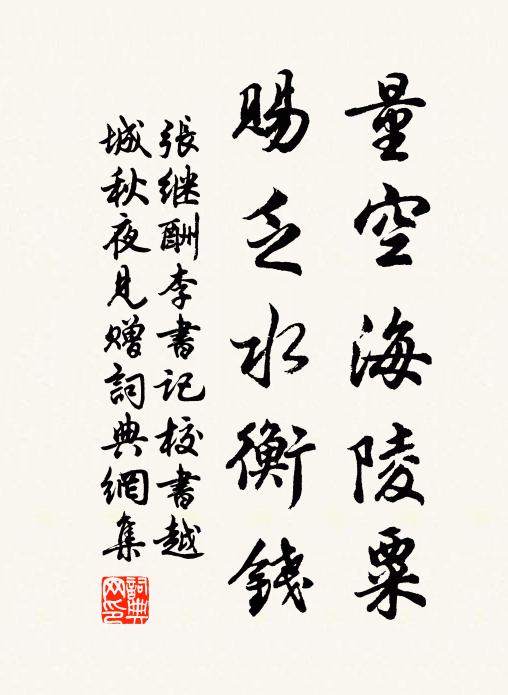 量空海陵粟
賜乏水衡錢
張继酬李書记校書越
城秋夜見贈詞典網集
詞典
网印